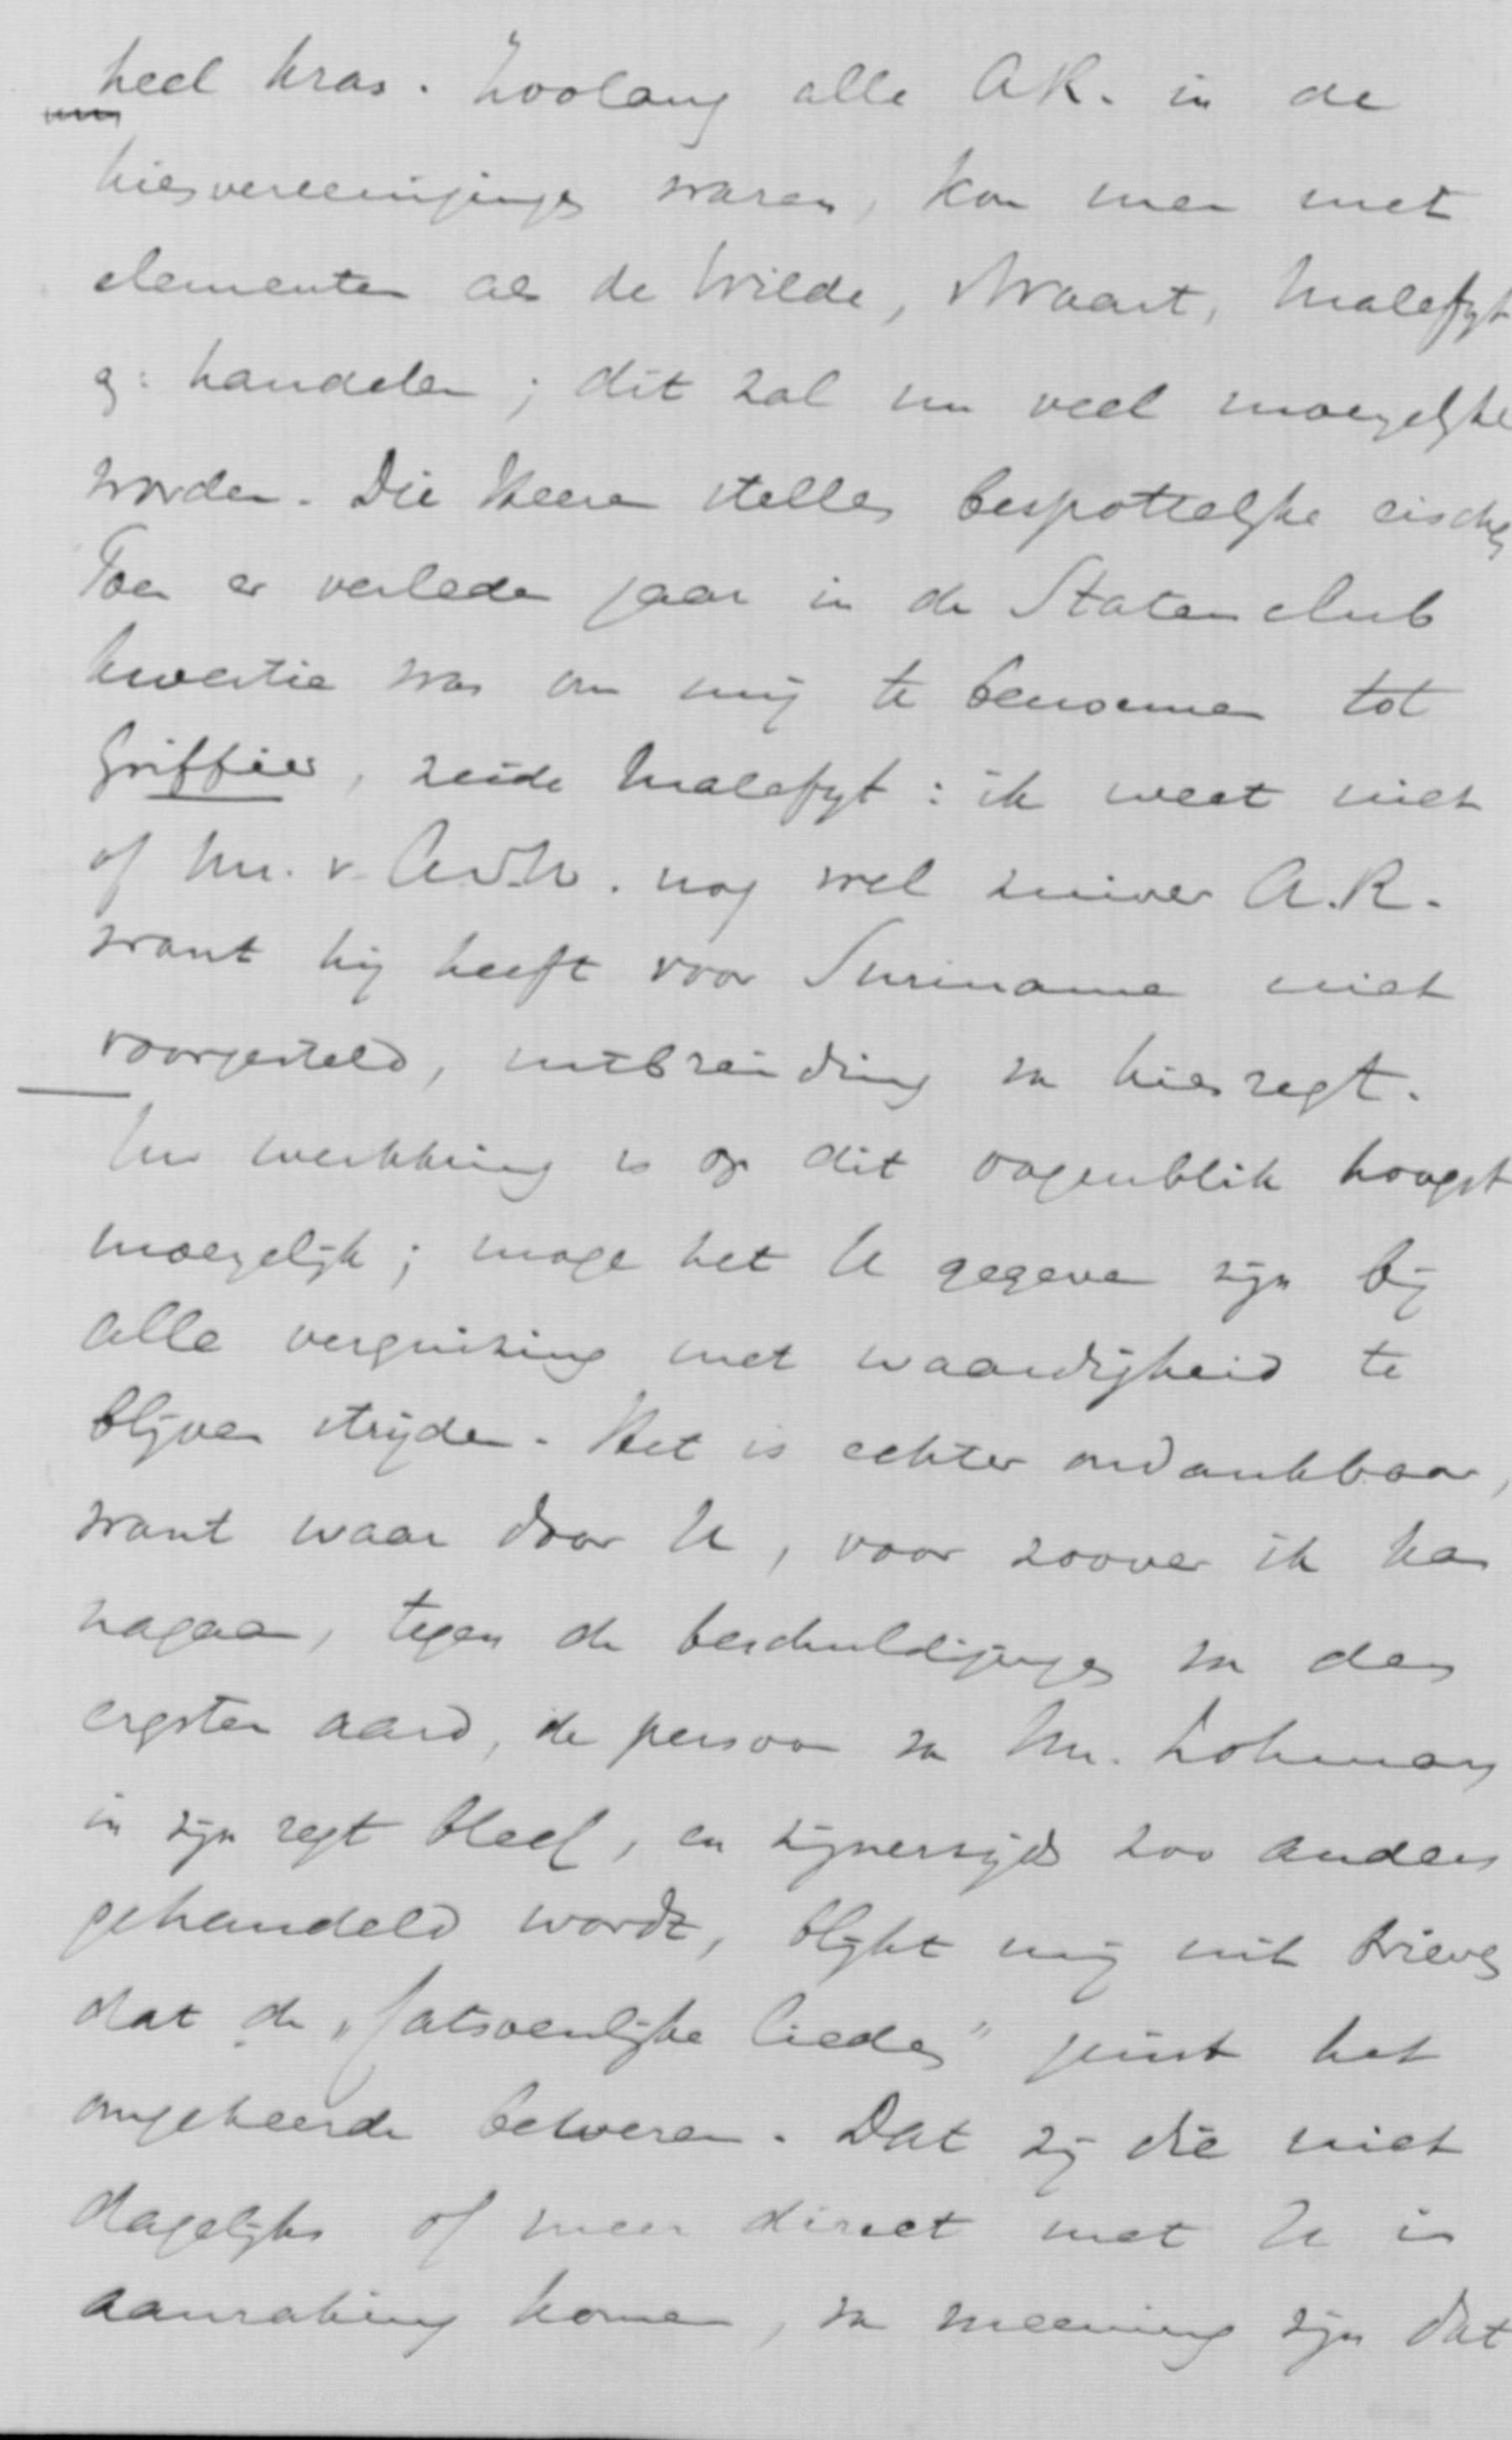 heel kras. Zoolang alle AR. in de
kiesvereenigingen waren, kon men met
elementen als de Wilde, Straart, Malefyt
handelen; dit zal nu veel moeyelyke
worden. Die Heeren stellen bespottelyke eischen
Toen er verleden jaar in de Statenclub
kwestie was om mij te benoemen tot
Griffier, zeide Malefyt: ik weet niet
of Mr. v. A.v.W. nog wel zuiver A.R.
want hij heeft voor Suriname niet
voorgesteld, uitbreiding van kiesregt.
Uw werkkring is op dit oogenblik hoogst
moeyelijk; moge het U gegeven zijn bij
alle verguizing met waardigheid te
blijven strijden. Het is echter ondankbaar,
want waar door U, voor zoover ik kan
nagaan, tegen de beschuldigingen van den
ergsten aard, de persoon van Mr. Lohman
in zijn regt bleef, en zijnerzijds zoo anders
gehandeld wordt, blykt mij uit brieven
dat de „fatsoenlijke lieden" juist het
omgekeerde beweren. Dat zij die niet
dagelijks of meer direct met U in
aanraking komen, van meening zijn dat